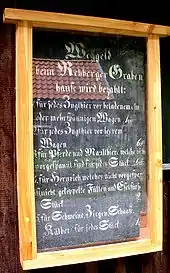 Weggeld
beim Rehberger Graben
haus wird bezahlt:
für jedes Zugthier vor beladenem
oder mehrspännigen Wagen
für jedes Zugthier vor leerem
Wagen
für Pferde und Maulthiere, welche nicht
vorgespannt sind für jedes Stück
für Hornvieh welches nicht vorgespannt
nicht gekoppelte Füllen und Esel für
Stück
für Schweine, Ziegen, Schaafe,
Kälber für jedes Stück